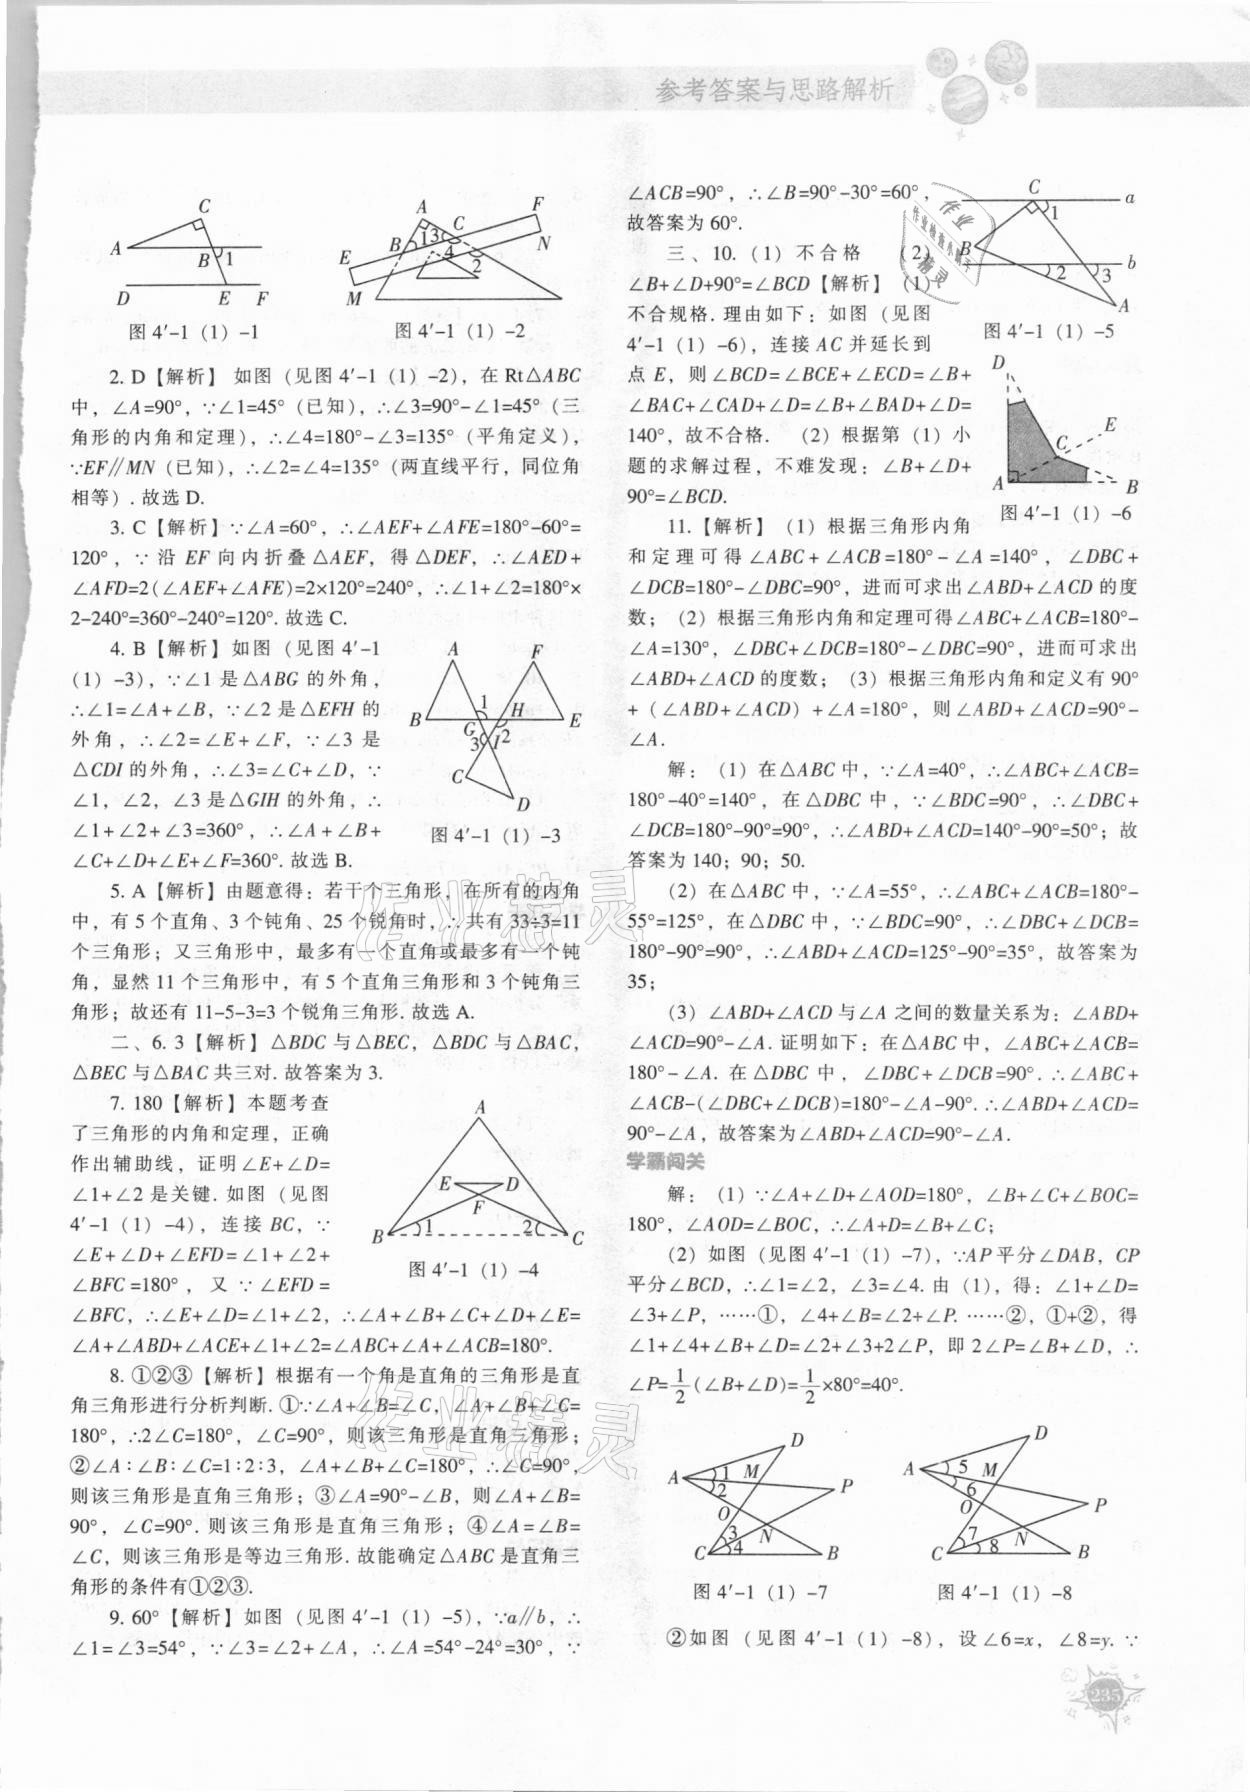 参考答案与思路解析
C
A
B
1
D
E
F
图 4′-1（1）-1
A
C
F
E
B
13
4
N
2
M
图 4′-1（1）-2
2. D【解析】 如图（见图 4′-1（1）-2），在 Rt△ABC
中，∠A=90°，∵∠1=45°（已知），∴∠3=90°-∠1=45°（三
角形的内角和定理），∴∠4=180°-∠3=135°（平角定义），
∵EF∥MN（已知），∴∠2=∠4=135°（两直线平行，同位角
相等）. 故选 D.
3. C【解析】∵∠A=60°，∴∠AEF+∠AFE=180°-60°=
120°，∵ 沿 EF 向内折叠△AEF，得△DEF，∴∠AED+
∠AFD=2(∠AEF+∠AFE)=2×120°=240°，∴∠1+∠2=180°×
2-240°=360°-240°=120°. 故选 C.
4. B【解析】如图（见图 4′-1
（1）-3），∵∠1 是△ABG 的外角，
∴∠1=∠A+∠B，∵∠2 是△EFH 的
外角，∴∠2=∠E+∠F，∵∠3 是
△CDI 的外角，∴∠3=∠C+∠D，∵
∠1，∠2，∠3 是△GIH 的外角，∴
∠1+∠2+∠3=360°，∴∠A+∠B+
∠C+∠D+∠E+∠F=360°. 故选 B.
A
F
1
H
B
G
2
E
3
I
C
D
图 4′-1（1）-3
5. A【解析】由题意得：若干个三角形，在所有的内角
中，有 5 个直角、3 个钝角、25 个锐角时，∴ 共有 33÷3=11
个三角形；又三角形中，最多有一个直角或最多有一个钝
角，显然 11 个三角形中，有 5 个直角三角形和 3 个钝角三
角形；故还有 11-5-3=3 个锐角三角形. 故选 A.
二、6. 3【解析】△BDC 与△BEC，△BDC 与△BAC，
△BEC 与△BAC 共三对. 故答案为 3.
7. 180【解析】本题考查
了三角形的内角和定理，正确
作出辅助线，证明∠E+∠D=
∠1+∠2 是关键. 如图（见图
4′-1（1）-4），连接 BC，∵
∠E+∠D+∠EFD=∠1+∠2+
∠BFC =180°，又 ∵∠EFD =
∠BFC，∴∠E+∠D=∠1+∠2，∴∠A+∠B+∠C+∠D+∠E=
∠A+∠ABD+∠ACE+∠1+∠2=∠ABC+∠A+∠ACB=180°.
A
E
D
F
B
1
2
C
图 4′-1（1）-4
8. ①②③【解析】根据有一个角是直角的三角形是直
角三角形进行分析判断. ①∵∠A+∠B=∠C，∠A+∠B+∠C=
180°，∴2∠C=180°，∠C=90°，则该三角形是直角三角形；
②∠A∶∠B∶∠C=1∶2∶3，∠A+∠B+∠C=180°，∴∠C=90°，
则该三角形是直角三角形；③∠A=90°-∠B，则∠A+∠B=
90°，∠C=90°. 则该三角形是直角三角形；④∠A=∠B=
∠C，则该三角形是等边三角形. 故能确定△ABC 是直角三
角形的条件有①②③.
9. 60°【解析】如图（见图 4′-1（1）-5），∵a∥b，∴
∠1=∠3=54°，∵∠3=∠2+∠A，∴∠A=54°-24°=30°，∵
∠ACB=90°，∴∠B=90°-30°=60°，
故答案为 60°.
C
a
1
B
b
2
3
A
图 4′-1（1）-5
三、10.（1）不合格 （2）
∠B+∠D+90°=∠BCD【解析】（1）
不合规格. 理由如下：如图（见图
4′-1（1）-6），连接 AC 并延长到
点 E，则∠BCD=∠BCE+∠ECD=∠B+
∠BAC+∠CAD+∠D=∠B+∠BAD+∠D=
140°，故不合格. （2）根据第（1）小
题的求解过程，不难发现：∠B+∠D+
90°=∠BCD.
D
E
C
A
B
图 4′-1（1）-6
11.【解析】（1）根据三角形内角
和定理可得∠ABC+∠ACB=180°-∠A=140°，∠DBC+
∠DCB=180°-∠DBC=90°，进而可求出∠ABD+∠ACD 的度
数；（2）根据三角形内角和定理可得∠ABC+∠ACB=180°-
∠A=130°，∠DBC+∠DCB=180°-∠DBC=90°，进而可求出
∠ABD+∠ACD 的度数；（3）根据三角形内角和定义有 90°
+（∠ABD+∠ACD）+∠A=180°，则∠ABD+∠ACD=90°-
∠A.
解：（1）在△ABC 中，∵∠A=40°，∴∠ABC+∠ACB=
180°-40°=140°，在△DBC 中，∵∠BDC=90°，∴∠DBC+
∠DCB=180°-90°=90°，∴∠ABD+∠ACD=140°-90°=50°；故
答案为 140；90；50.
（2）在△ABC 中，∵∠A=55°，∴∠ABC+∠ACB=180°-
55°=125°，在△DBC 中，∵∠BDC=90°，∴∠DBC+∠DCB=
180°-90°=90°，∴∠ABD+∠ACD=125°-90°=35°，故答案为
35；
（3）∠ABD+∠ACD 与∠A 之间的数量关系为：∠ABD+
∠ACD=90°-∠A. 证明如下：在△ABC 中，∠ABC+∠ACB=
180°-∠A. 在△DBC 中，∠DBC+∠DCB=90°. ∴∠ABC+
∠ACB-(∠DBC+∠DCB)=180°-∠A-90°. ∴∠ABD+∠ACD=
90°-∠A，故答案为∠ABD+∠ACD=90°-∠A.
学霸闯关
解：（1）∵∠A+∠D+∠AOD=180°，∠B+∠C+∠BOC=
180°，∠AOD=∠BOC，∴∠A+D=∠B+∠C；
（2）如图（见图 4′-1（1）-7），∵AP 平分∠DAB，CP
平分∠BCD，∴∠1=∠2，∠3=∠4. 由（1），得：∠1+∠D=
∠3+∠P，……①，∠4+∠B=∠2+∠P. ……②，①+②，得
∠1+∠4+∠B+∠D=∠2+∠3+2∠P，即 2∠P=∠B+∠D，∴
∠P=1/2(∠B+∠D)=1/2×80°=40°.
D
A
1
M
2
P
O
3
N
C
4
B
图 4′-1（1）-7
D
A
5
M
6
O
P
7
N
C
8
B
图 4′-1（1）-8
②如图（见图 4′-1（1）-8），设∠6=x，∠8=y. ∵
235
作业精灵
作业精灵
作业
作业检查小助手
精灵